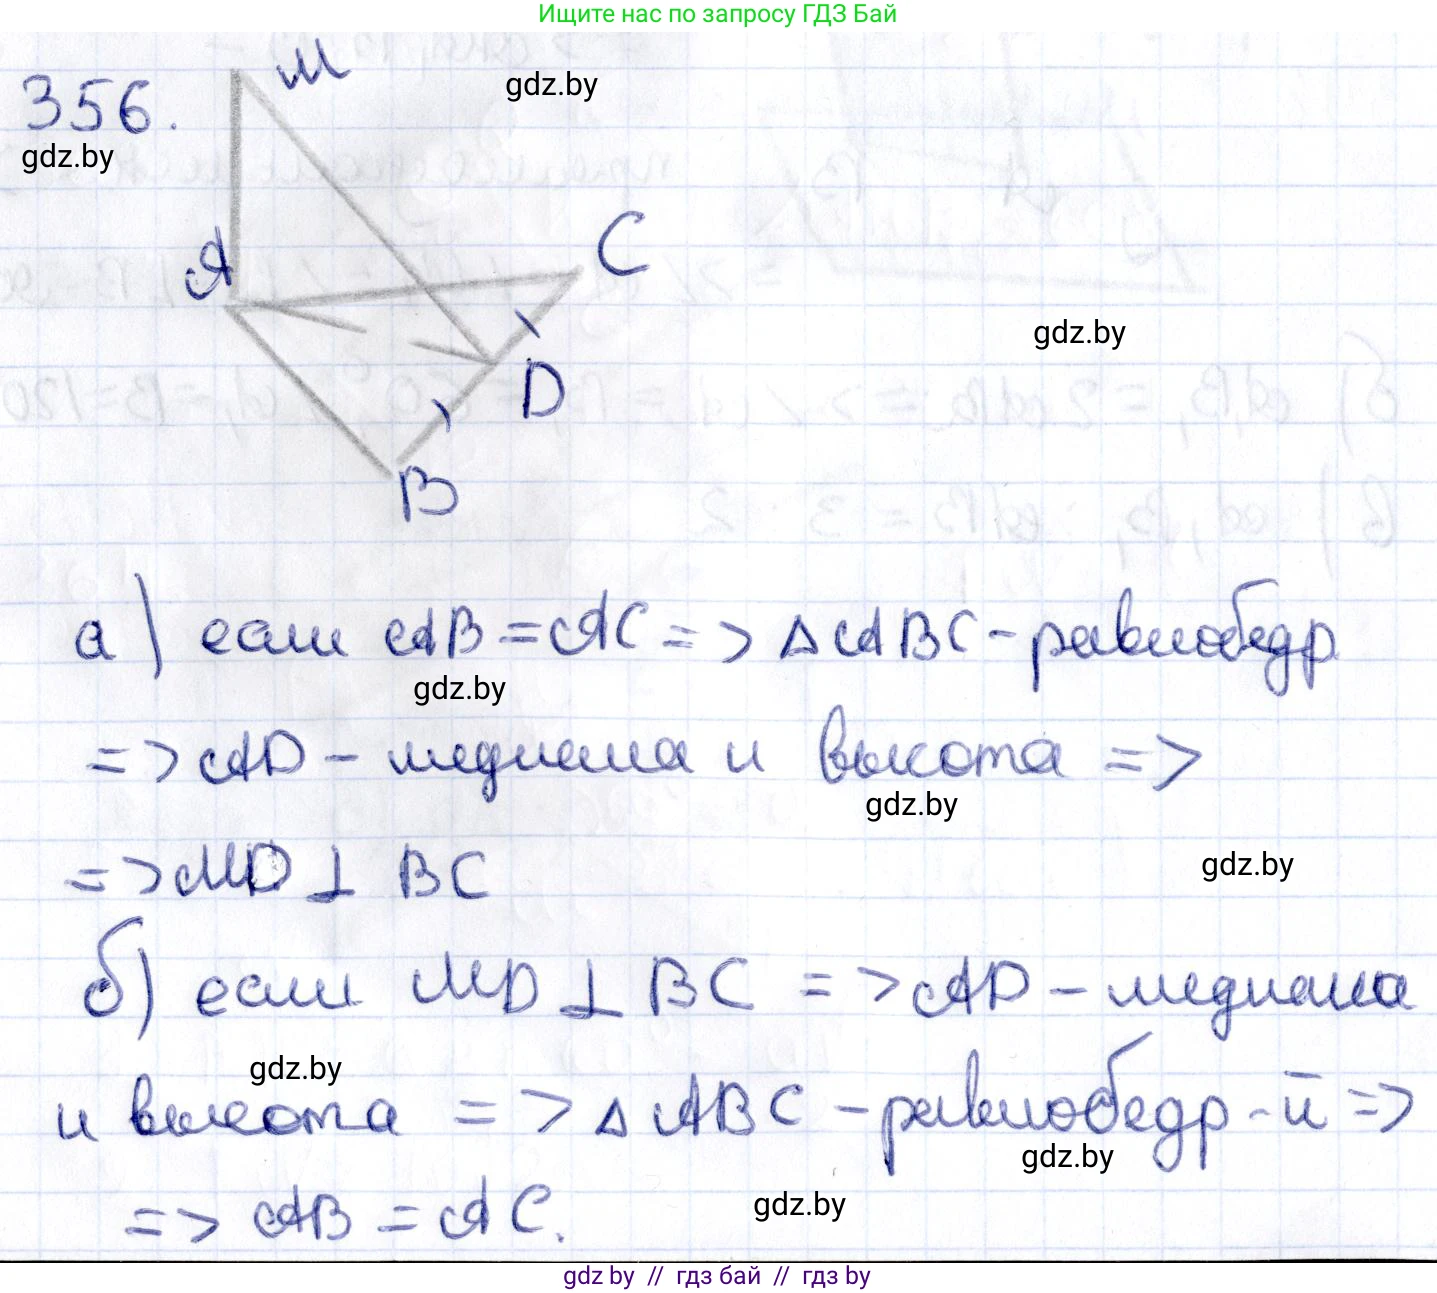 Ищите нас по запросу ГДЗ Бай
356.
gdz.by
M
gdz.by
A
C
gdz.by
D
B
а) если AB = AC => △ ABC - равнобедр
gdz.by
=> AD - медиана и высота =>
gdz.by
=> MD ⊥ BC
gdz.by
б) если MD ⊥ BC => AD - медиана
gdz.by
и высота => △ ABC - равнобедр-й =>
gdz.by
=> AB = AC.
gdz.by
gdz by // гдз бай // гдз by